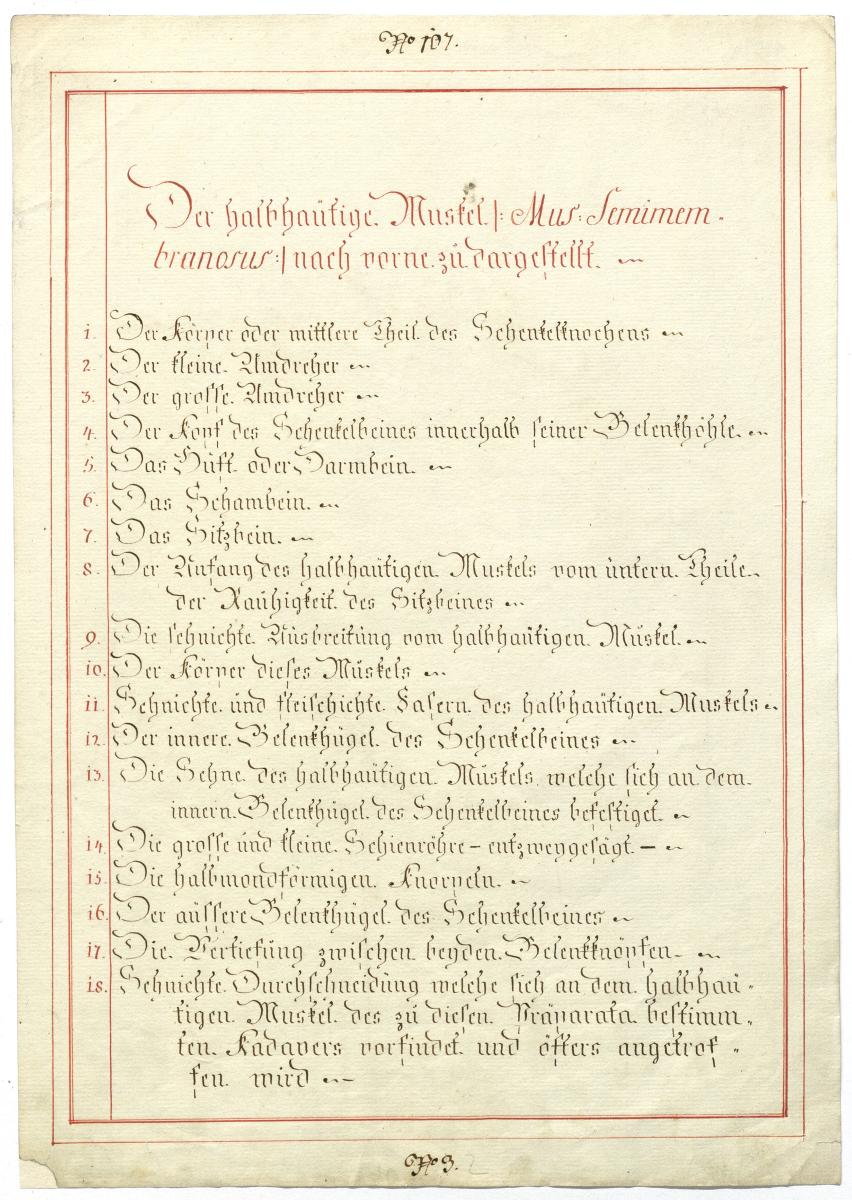 No 107.
Der halbhäutige Muskel |: Mus: Semimem-
branosus :| nach vorne zu dargestellt.
1. Der Körper oder mittlere Theil des Schenkelknochens
2. Der kleine Umdreher
3. Der grosse Umdreher
4. Der Kopf des Schenkelbeines innerhalb seiner Gelenkhöhle.
5. Das Hüft oder Darmbein.
6. Das Schambein.
7. Das Sitzbein.
8. Der Anfang des halbhäutigen Muskels vom untern Theile
der Rauhigkeit des Sitzbeines
9. Die sehnichte Ausbreitung vom halbhäutigen Muskel.
10. Der Körper dieses Muskels
11. Sehnichte und fleischichte Fasern des halbhäutigen Muskels
12. Der innere Gelenkhügel des Schenkelbeines
13. Die Sehne des halbhäutigen Muskels welche sich an dem
innern Gelenkhügel des Schenkelbeines befestiget.
14. Die grosse und kleine Schienröhre – entzweygesägt –
15. Die halbmondförmigen Knorpeln.
16. Der äussere Gelenkhügel des Schenkelbeines
17. Die Vertiefung zwischen beyden Gelenkknöpfen
18. Sehnichte Durchschneidung welche sich an dem halbhäu-
tigen Muskel des zu diesen Präparata bestimm-
ten Kadavers vorfindet und öfters angetrof-
fen wird
No 3.